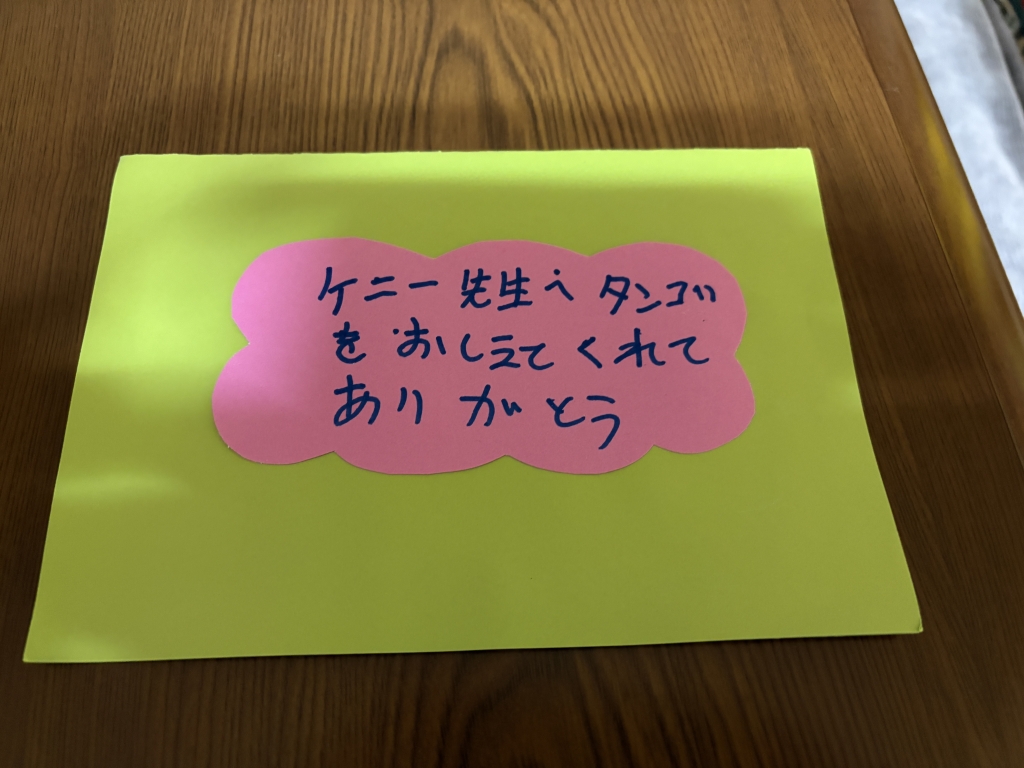 ケニー先生へ タンゴ
をおしえてくれて
ありがとう